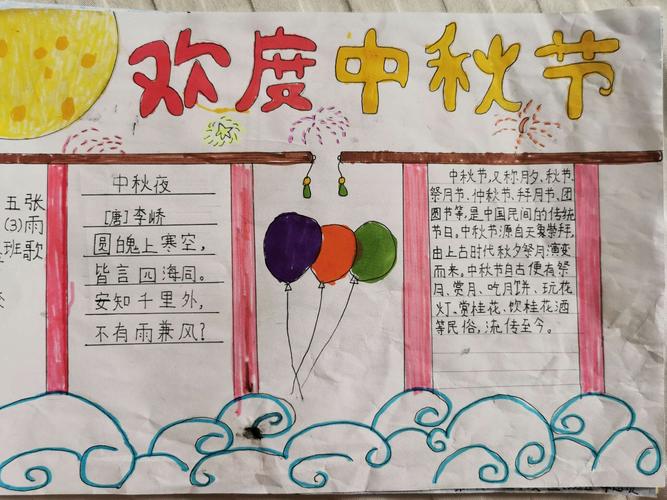 欢度中秋节
五(3)班
张雨歌
中秋夜
[唐]李峤
圆魄上寒空,
皆言四海同。
安知千里外,
不有雨兼风?
中秋节,又称月夕、秋节、
祭月节、仲秋节、拜月节、团
圆节等,是中国民间的传统
节日。中秋节源自天象崇拜,
由上古时代秋夕祭月演变
而来。中秋节自古便有祭
月、赏月、吃月饼、玩花
灯、赏桂花、饮桂花酒
等民俗,流传至今。